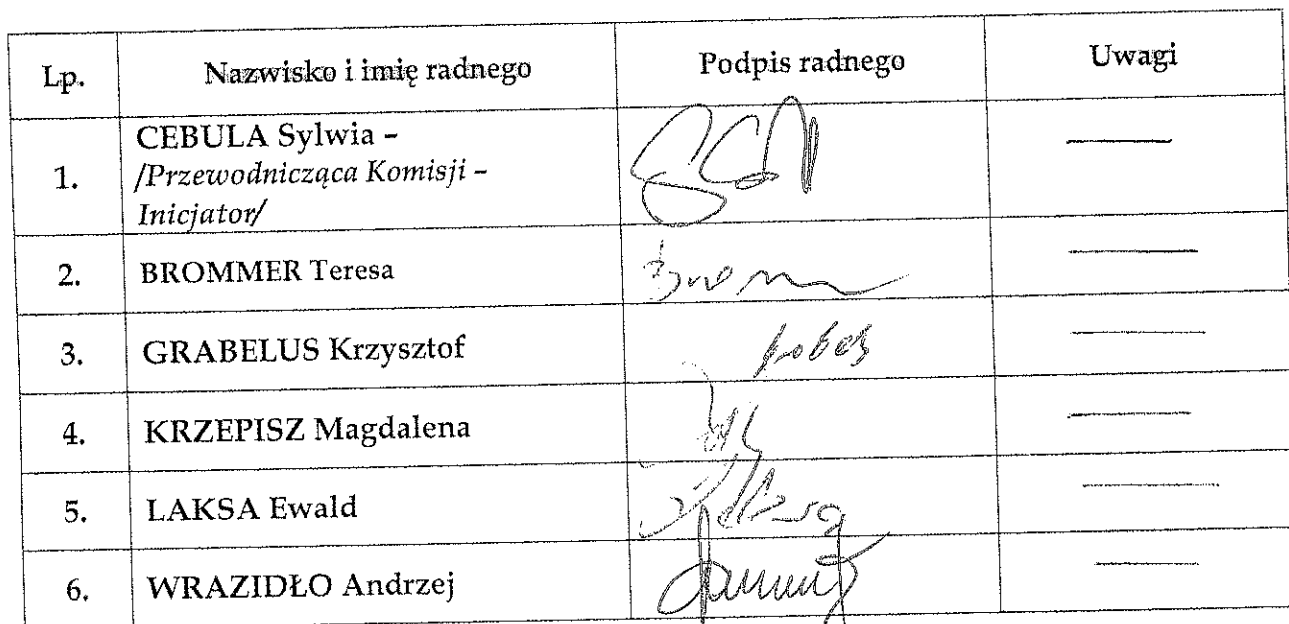 Lp. Nazwisko i imię radnego Podpis radnego Uwagi
1. CEBULA Sylwia –
/Przewodnicząca Komisji –
Inicjator/
2. BROMMER Teresa
3. GRABELUS Krzysztof
4. KRZEPISZ Magdalena
5. LAKSA Ewald
6. WRAZIDŁO Andrzej